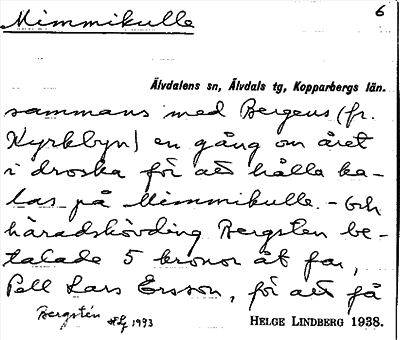 Mimmikulle
6
Älvdalens sn, Älvdals tg, Kopparbergs län.
sammans med Bergens (fr.
Kyrkbyn) en gång om året
i droska för att hålla ka-
las på Mimmikulle. - Och
häradshövding Bergsten be-
talade 5 kronor åt far,
Pell Lars Ersson, för att få
Bergstén 1993
HELGE LINDBERG 1938.